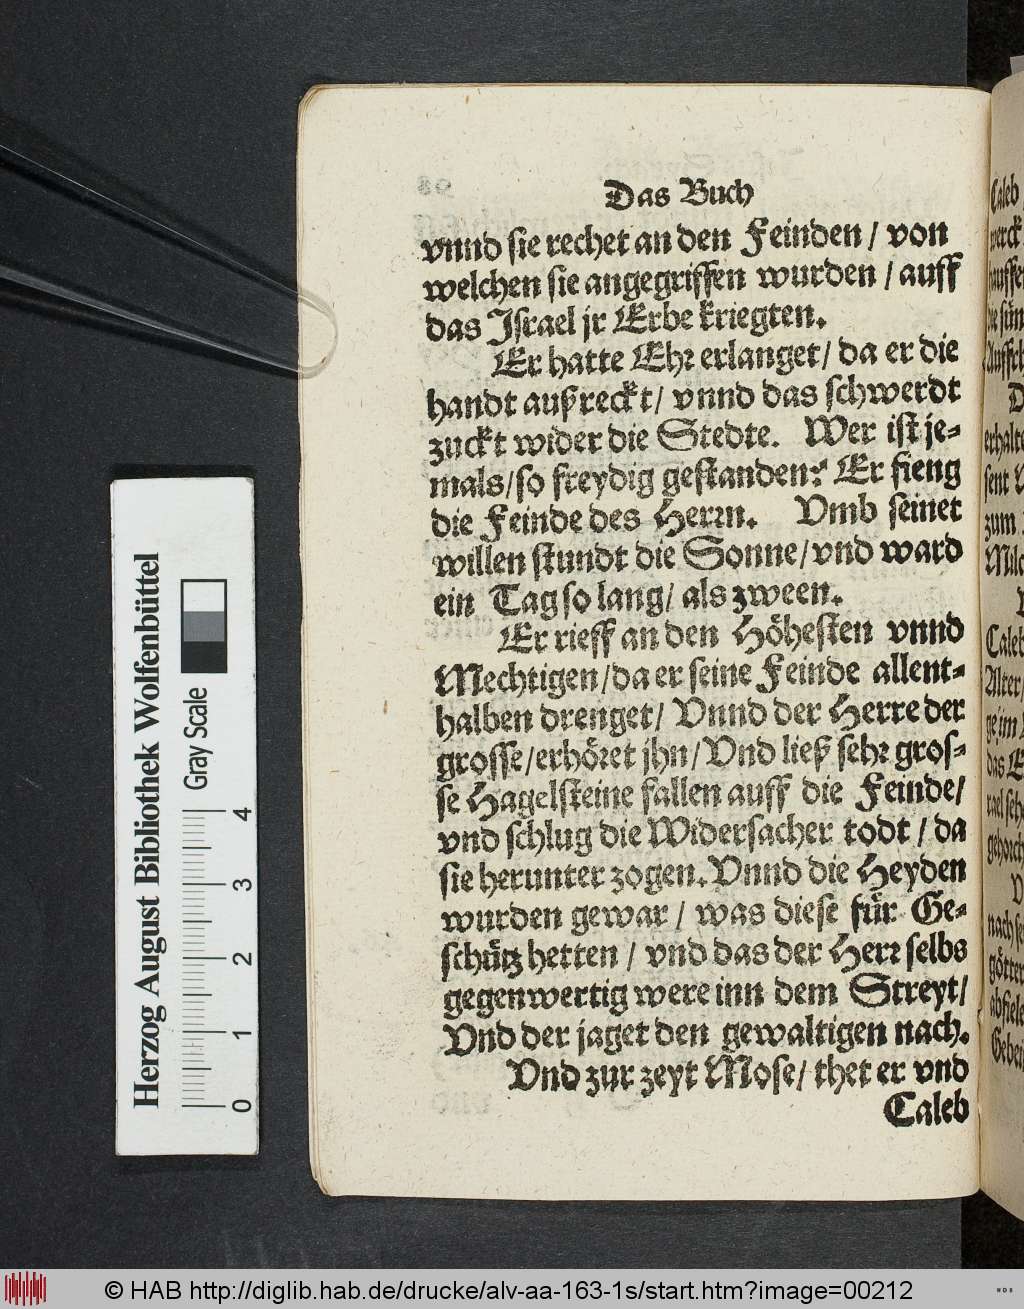 Das Buch
vnnd sie rechet an den Feinden / von
welchen sie angegriffen wurden / auff
das Israel jr Erbe kriegten.
Er hatte Ehr erlanget / da er die
handt außreckt / vnnd das schwerdt
zuckt wider die Stedte. Wer ist je-
mals / so freydig gestanden? Er fieng
die Feinde des Herrn. Vmb seinet
willen stundt die Sonne / vnd ward
ein Tag so lang / als zween.
Er rieff an den Höhesten vnnd
Mechtigen / da er seine Feinde allent-
halben drenget / Vnnd der Herre der
grosse / erhöret jhn / Vnd ließ sehr gros-
se Hagelsteine fallen auff die Feinde /
vnd schlug die Widersacher todt / da
sie herunter zogen. Vnnd die Heyden
wurden gewar / was diese für Ge-
schütz hetten / vnd das der Herr selbs
gegenwertig were inn dem Streyt /
Vnd der jaget den gewaltigen nach.
Vnd zur zeyt Mose / thet er vnd
Caleb
Herzog August Bibliothek Wolfenbüttel
Gray Scale
0 1 2 3 4
© HAB http://diglib.hab.de/drucke/alv-aa-163-1s/start.htm?image=00212